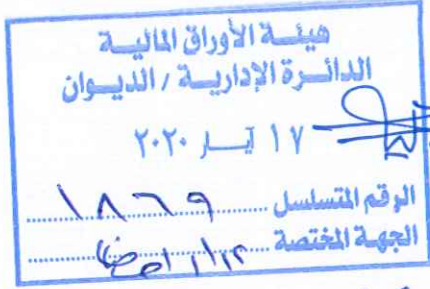 هيئة الأوراق المالية
الدائرة الإدارية / الديوان
١٧ أيار ٢٠٢٠
الرقم المتسلسل ١٨٦٩
الجهة المختصة